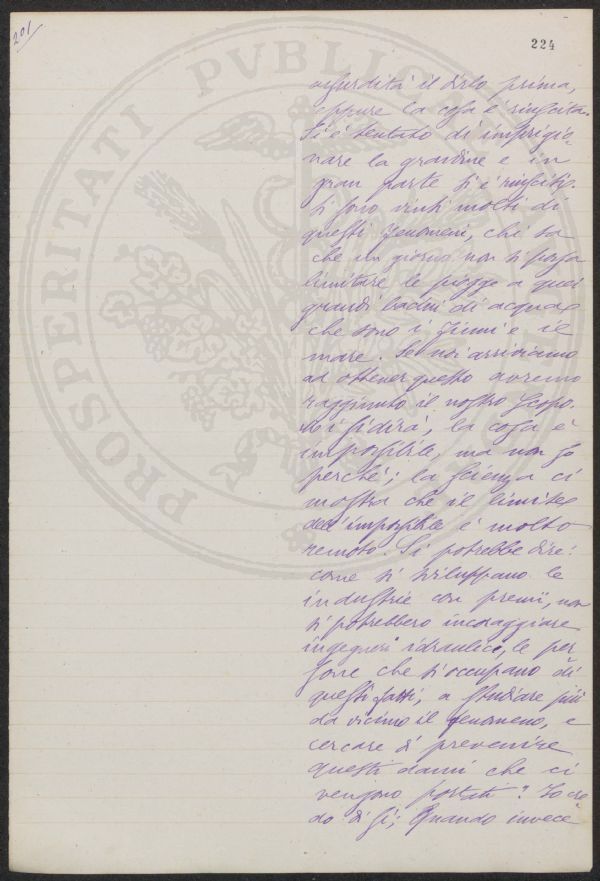 201
224
PROSPERITATI PVBLICAE
assurdità il dirlo prima,
eppure la cosa è riuscita.
Si è tentato di imprigio-
nare la grandine e in
gran parte si è riusciti.
Si sono vinti molti di
questi fenomeni, chi sa
che un giorno non si possa
limitare le piogge a quei
grandi bacini di acqua
che sono i fiumi e il
mare. Se noi arriviamo
ad ottener questo avremo
raggiunto il nostro scopo.
si dirà, la cosa è
impossibile, ma non so
perché; la scienza ci
mostra che il limite
dell'impossibile è molto
remoto. Si potrebbe dire:
come si sviluppano le
industrie con premii, non
si potrebbero incoraggiare
ingegneri idraulici, le per
sone che si occupano di
questi fatti, a studiare più
da vicino il fenomeno, e
cercare di prevenire
questi danni che ci
vengono portati? Io cre
do di sì; Quando invece